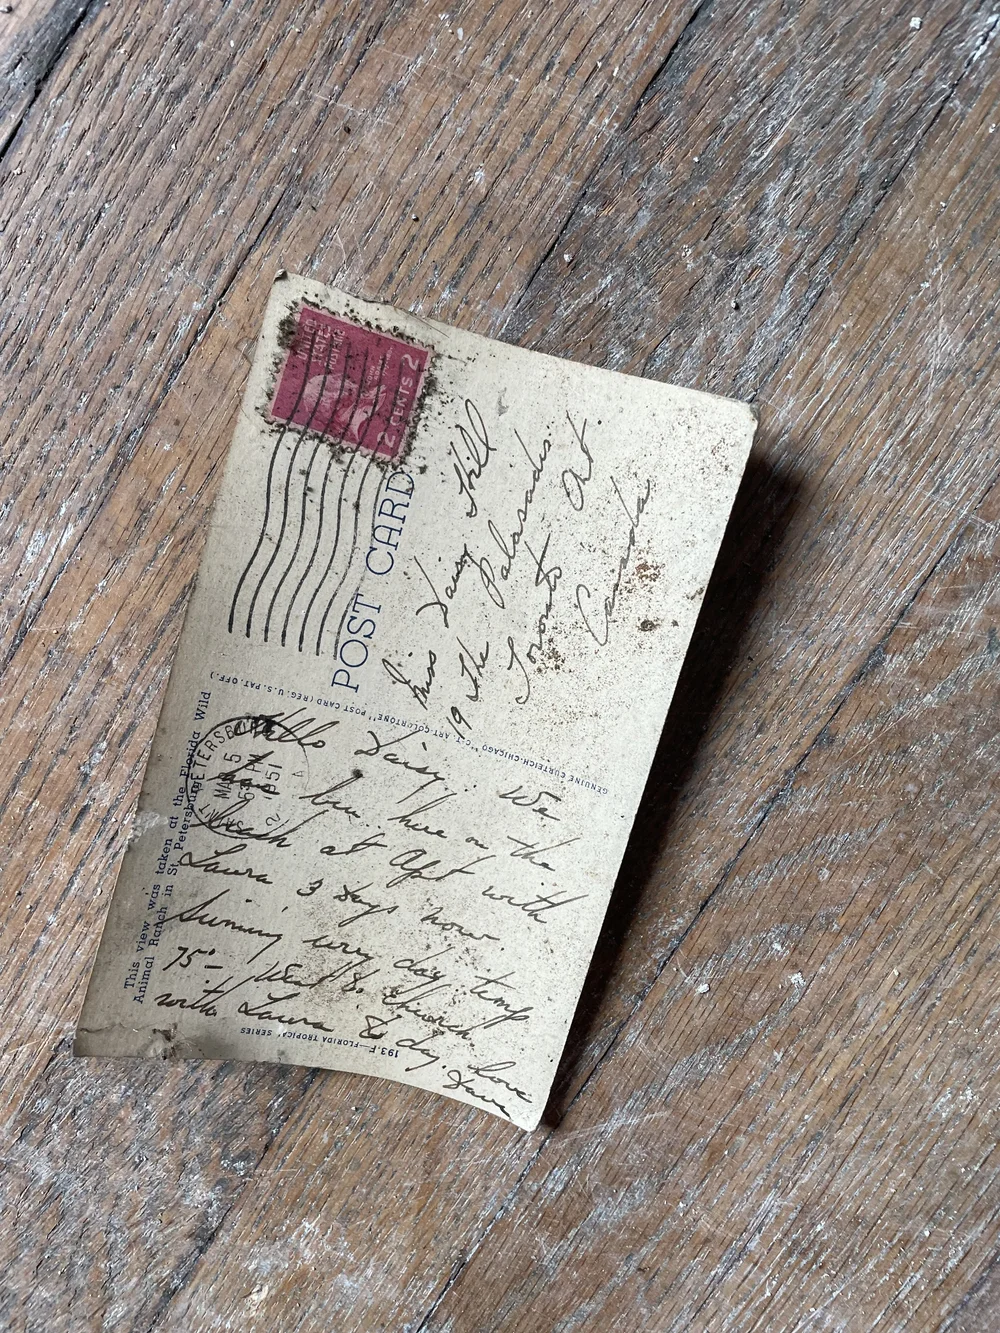 This view was taken at the Florida Wild
Animal Ranch in St. Petersburg
UNITED
STATES
POSTAGE
2 CENTS 2
POST CARD
ST. PETERSBURG
MAR 5
1951
Miss Daisy Hill
19 The Palasades.
Toronto Ont.
Canada
GENUINE CURTEICH-CHICAGO "C.T. ART-COLORTONE" POST CARD (REG. U.S. PAT. OFF.)
Hello Daisy. We
have been here on the
at Apt with
Laura 3 days now
day, temp
75° Went to church
with Laura to day. Love
Dave
193.F—FLORIDA TROPICAL SERIES